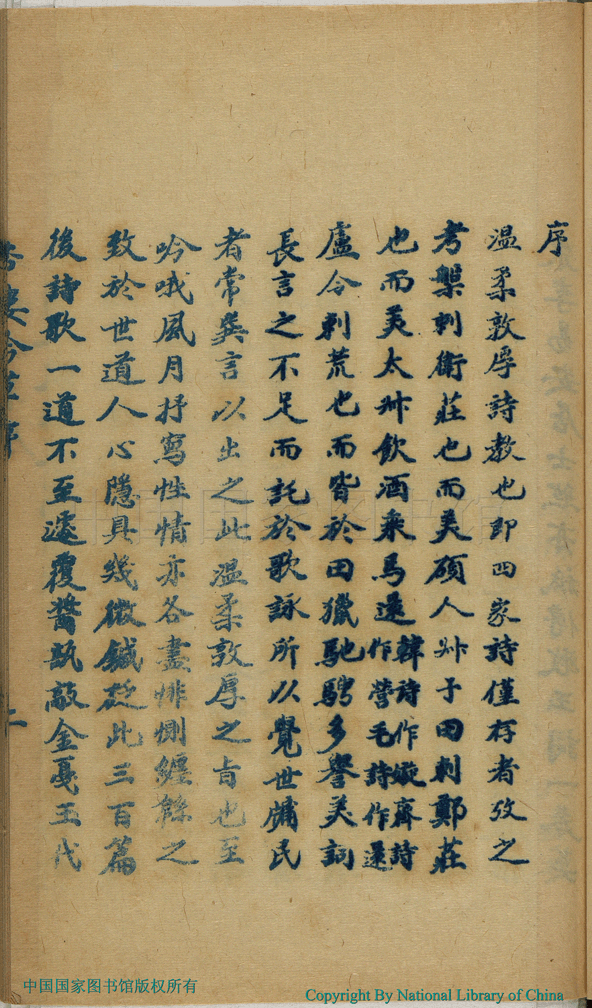 序
温柔敦厚詩教也即四家詩僅存者攷之
考槃刺衛莊也而美碩人叔于田刺鄭莊
也而美太叔飲酒乘馬還韓詩作嫙齊詩作營毛詩作還
盧令刺荒也而皆於田獵馳騁多譽美詞
長言之不足而託於歌詠所以覺世牖民
者常巽言以出之此温柔敦厚之旨也至
吟哦風月抒寫性情亦各盡悱惻纏緜之
致於世道人心隱具幾微鍼砭此三百篇
後詩歌一道不至遽覆醬瓿敲金戛玉代
吟草 序
中国国家图书馆版权所有
Copyright By National Library of China